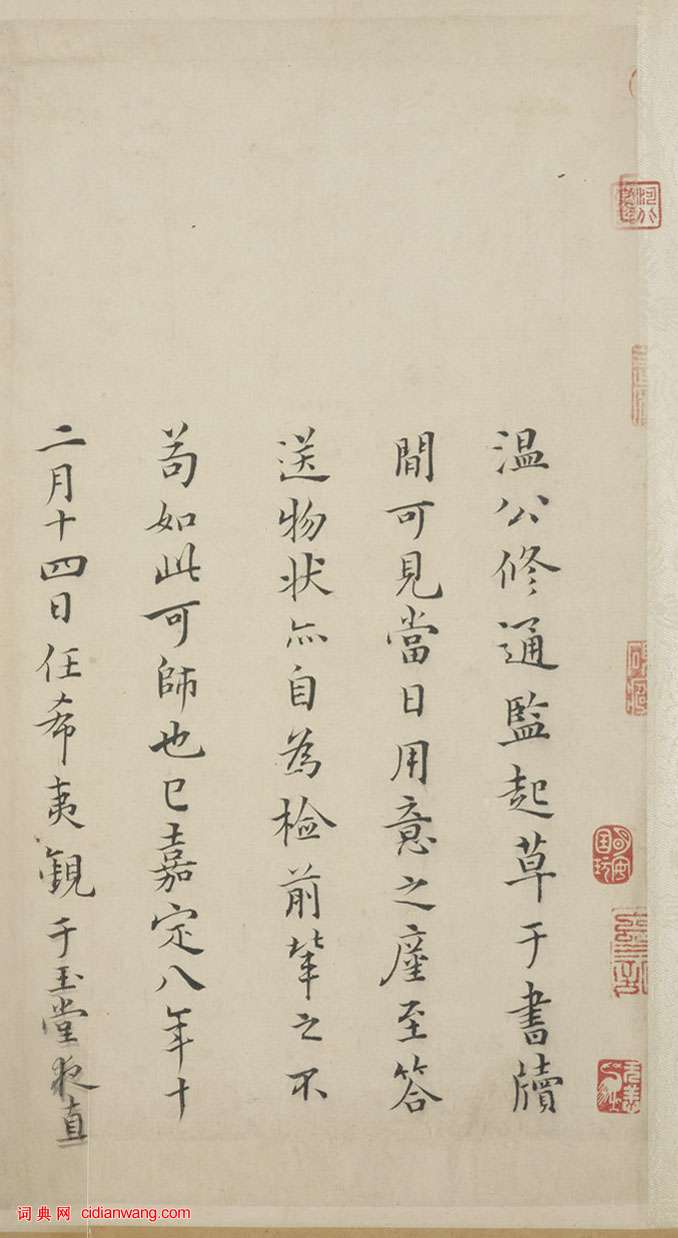 温公修通監起草于書牘
間可見當日用意之廑至答
送物狀亦自為檢前輩之不
苟如此可師也已嘉定八年十
二月十四日任希夷觀于玉堂夜直
词典网 cidianwang.com